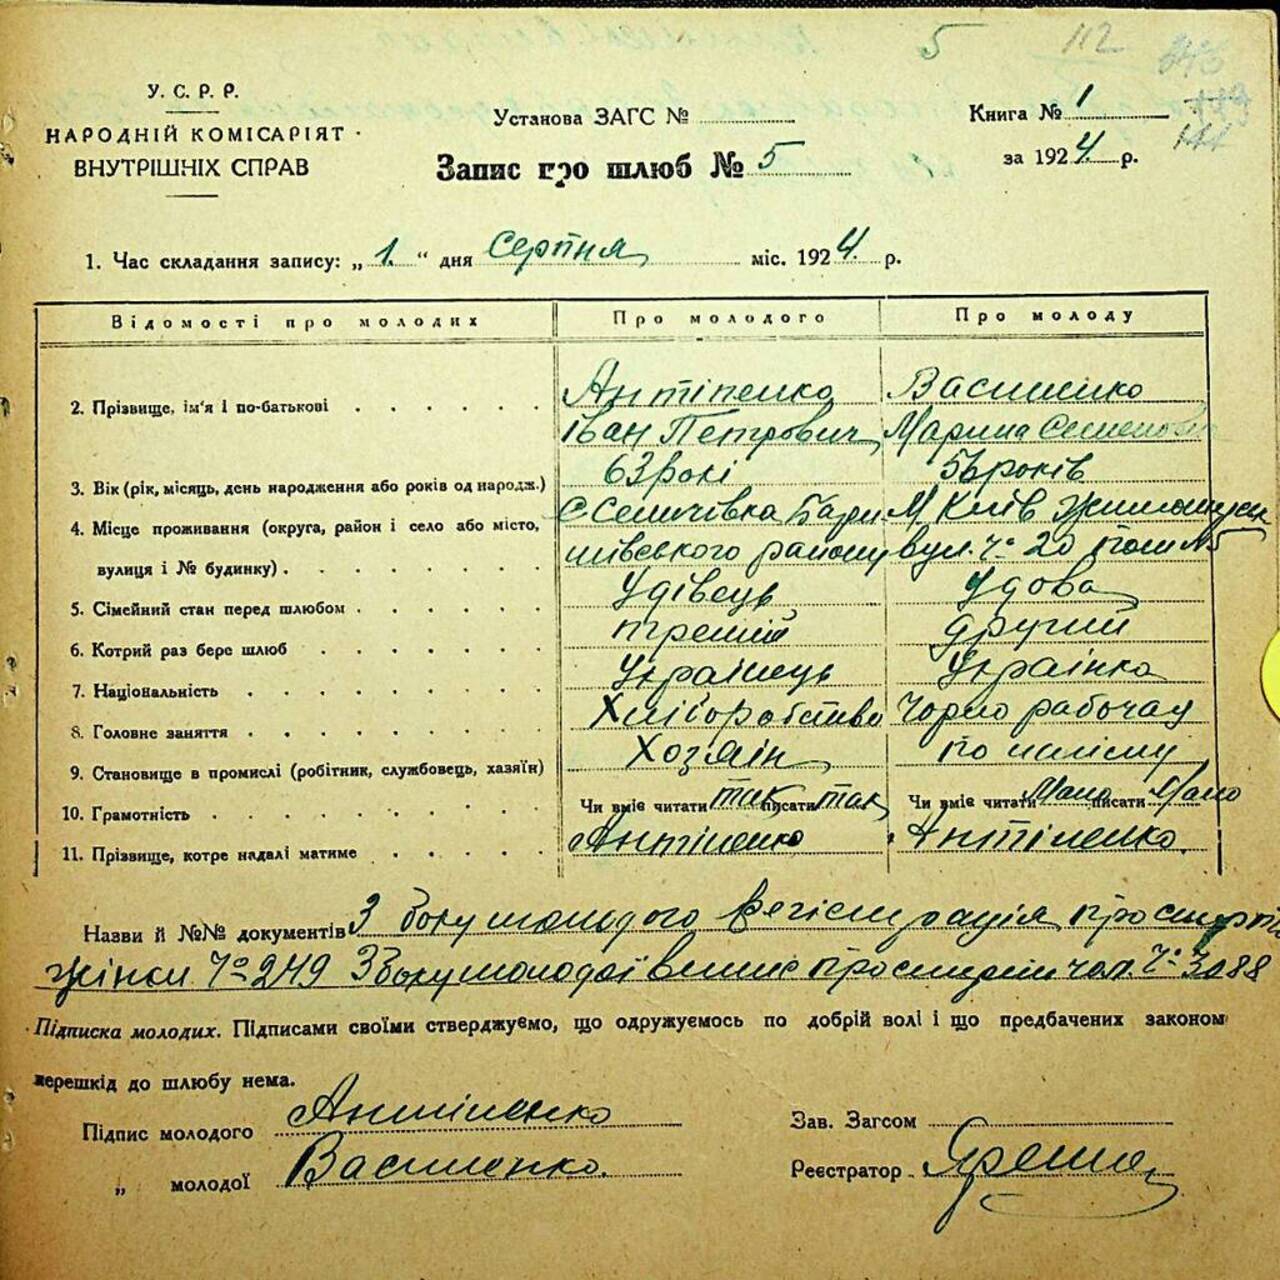 5 112
У. С. Р. Р.
НАРОДНІЙ КОМІСАРІЯТ
ВНУТРІШНІХ СПРАВ
Установа ЗАГС №
Книга № 1
за 1924 р.
Запис про шлюб № 5
1. Час складання запису: „1.“ дня Серпня міс. 1924. р.
Відомості про молодих Про молодого Про молоду
2. Прізвище, ім'я і по-батькові Антіпенко Василенко
Іван Петрович Марина Семенов
3. Вік (рік, місяць, день народження або років од народж.) 63 рокі 56 років
4. Місце проживання (округа, район і село або місто, С Селичівка Бари- М. Київ
вулиця і № будинку) шівського району вул. Чº 20 пом №5
5. Сімейний стан перед шлюбом Удівець Удова
6. Котрий раз бере шлюб третій другий
7. Національність Українець Українка
8. Головне заняття Хліборобство Чорно рабочая
9. Становище в промислі (робітник, службовець, хазяїн) Хозяін по найму
10. Грамотність Чи вміє читати так писати так Чи вміє читати Мало писати Мало
11. Прізвище, котре надалі матиме Антіпенко Антіпенко.
Назви й №№ документів З боку молодого регістрація про смерть
жінки Чº 249 З боку молодої випис про смерть чол. Чº 3088
Підписка молодих. Підписами своїми стверджуємо, що одружуємось по добрій волі і що предбачених законом
перешкід до шлюбу нема.
Підпис молодого Антіпенко Зав. Загсом
„ молодої Василенко. Реєстратор Ярема